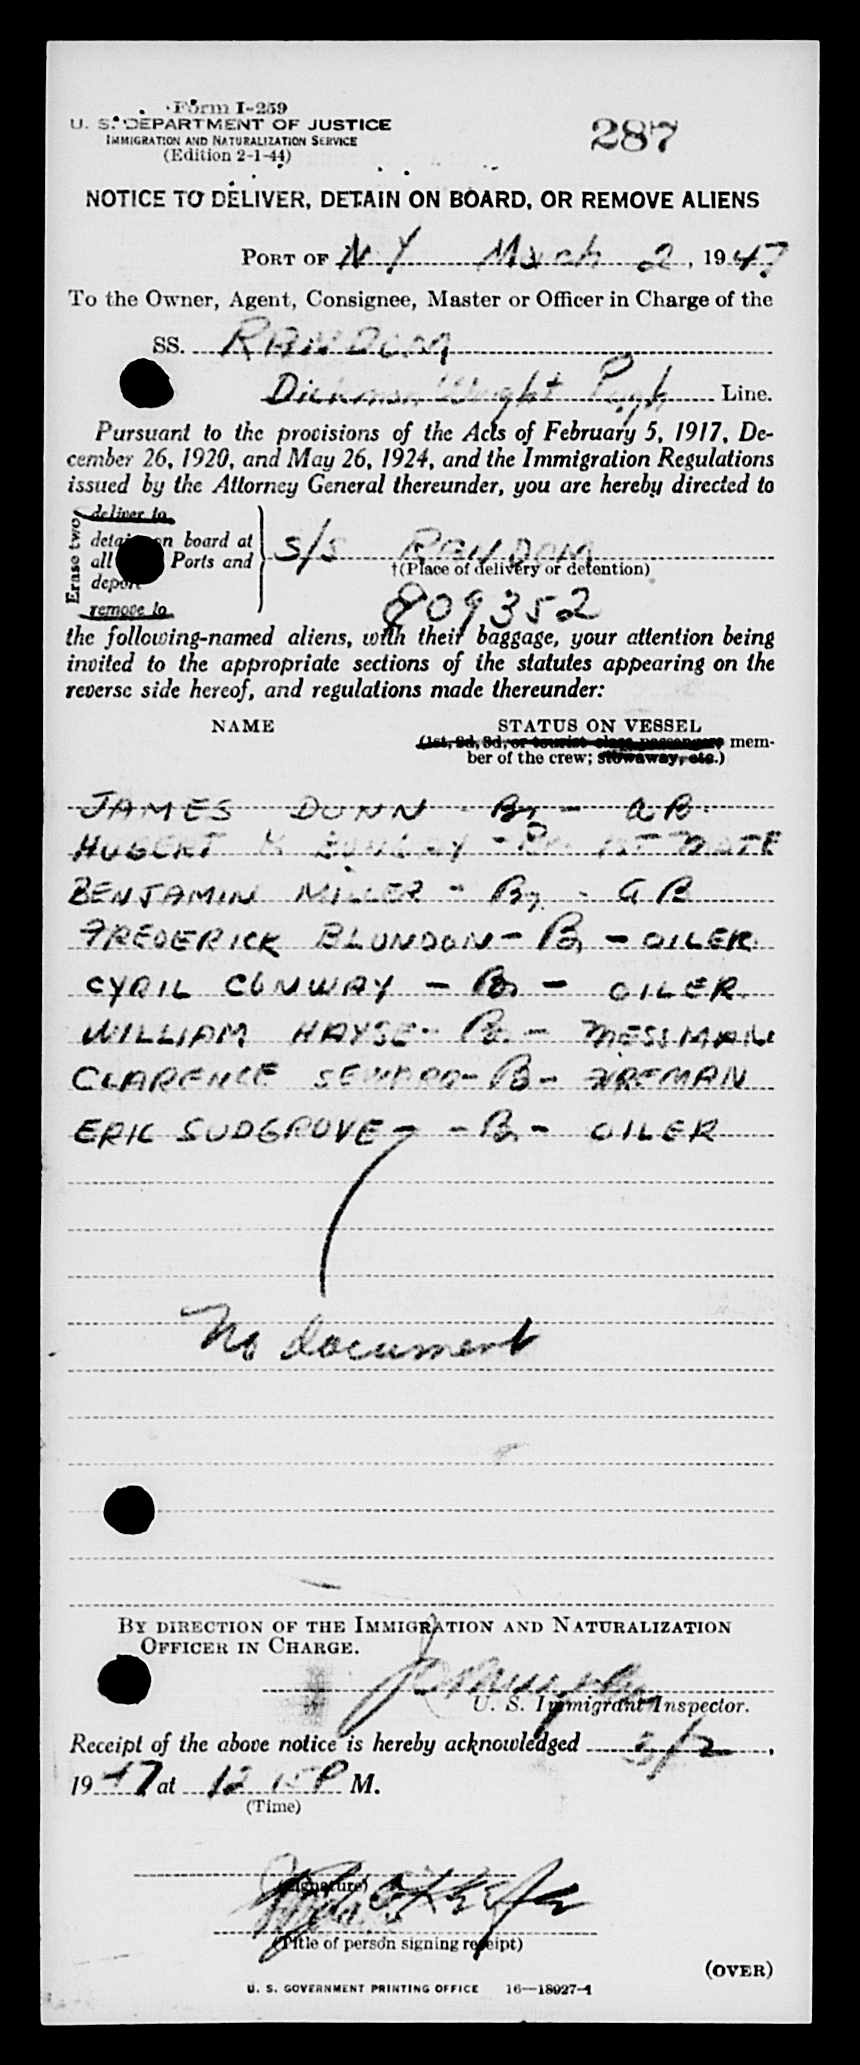 Form I-259
U. S. DEPARTMENT OF JUSTICE
IMMIGRATION AND NATURALIZATION SERVICE
(Edition 2-1-44)
287
NOTICE TO DELIVER, DETAIN ON BOARD, OR REMOVE ALIENS
PORT OF N Y March 2, 1947
To the Owner, Agent, Consignee, Master or Officer in Charge of the
SS. RANDOM
Dickman Wright Pugh Line.
Pursuant to the provisions of the Acts of February 5, 1917, De-
cember 26, 1920, and May 26, 1924, and the Immigration Regulations
issued by the Attorney General thereunder, you are hereby directed to
Erase two
deliver to
detain on board at
all Ports and
deport
remove to
S/S RANDOM
†(Place of delivery or detention)
809352
the following-named aliens, with their baggage, your attention being
invited to the appropriate sections of the statutes appearing on the
reverse side hereof, and regulations made thereunder:
NAME STATUS ON VESSEL
(1st, 2d, 3d, or tourist class passengers mem-
ber of the crew; stowaway, etc.)
JAMES DUNN - Br - AB.
HUBERT - Br. 1ST MATE
BENJAMIN MILLER - Br. - AB
FREDERICK BLUNDON - Br - OILER.
CYRIL CONWAY - Br - OILER.
WILLIAM HAYSE - Br. - MESSMAN
CLARENCE SEWARD - B - FIREMAN
ERIC SUDGROVE - - Br - OILER
No document
BY DIRECTION OF THE IMMIGRATION AND NATURALIZATION
OFFICER IN CHARGE.
J Murphy
U. S. Immigrant Inspector.
Receipt of the above notice is hereby acknowledged 3/2,
1947 at 12 15 P M.
(Time)
(Signature)
(Title of person signing receipt)
(OVER)
U. S. GOVERNMENT PRINTING OFFICE 16—18027-1